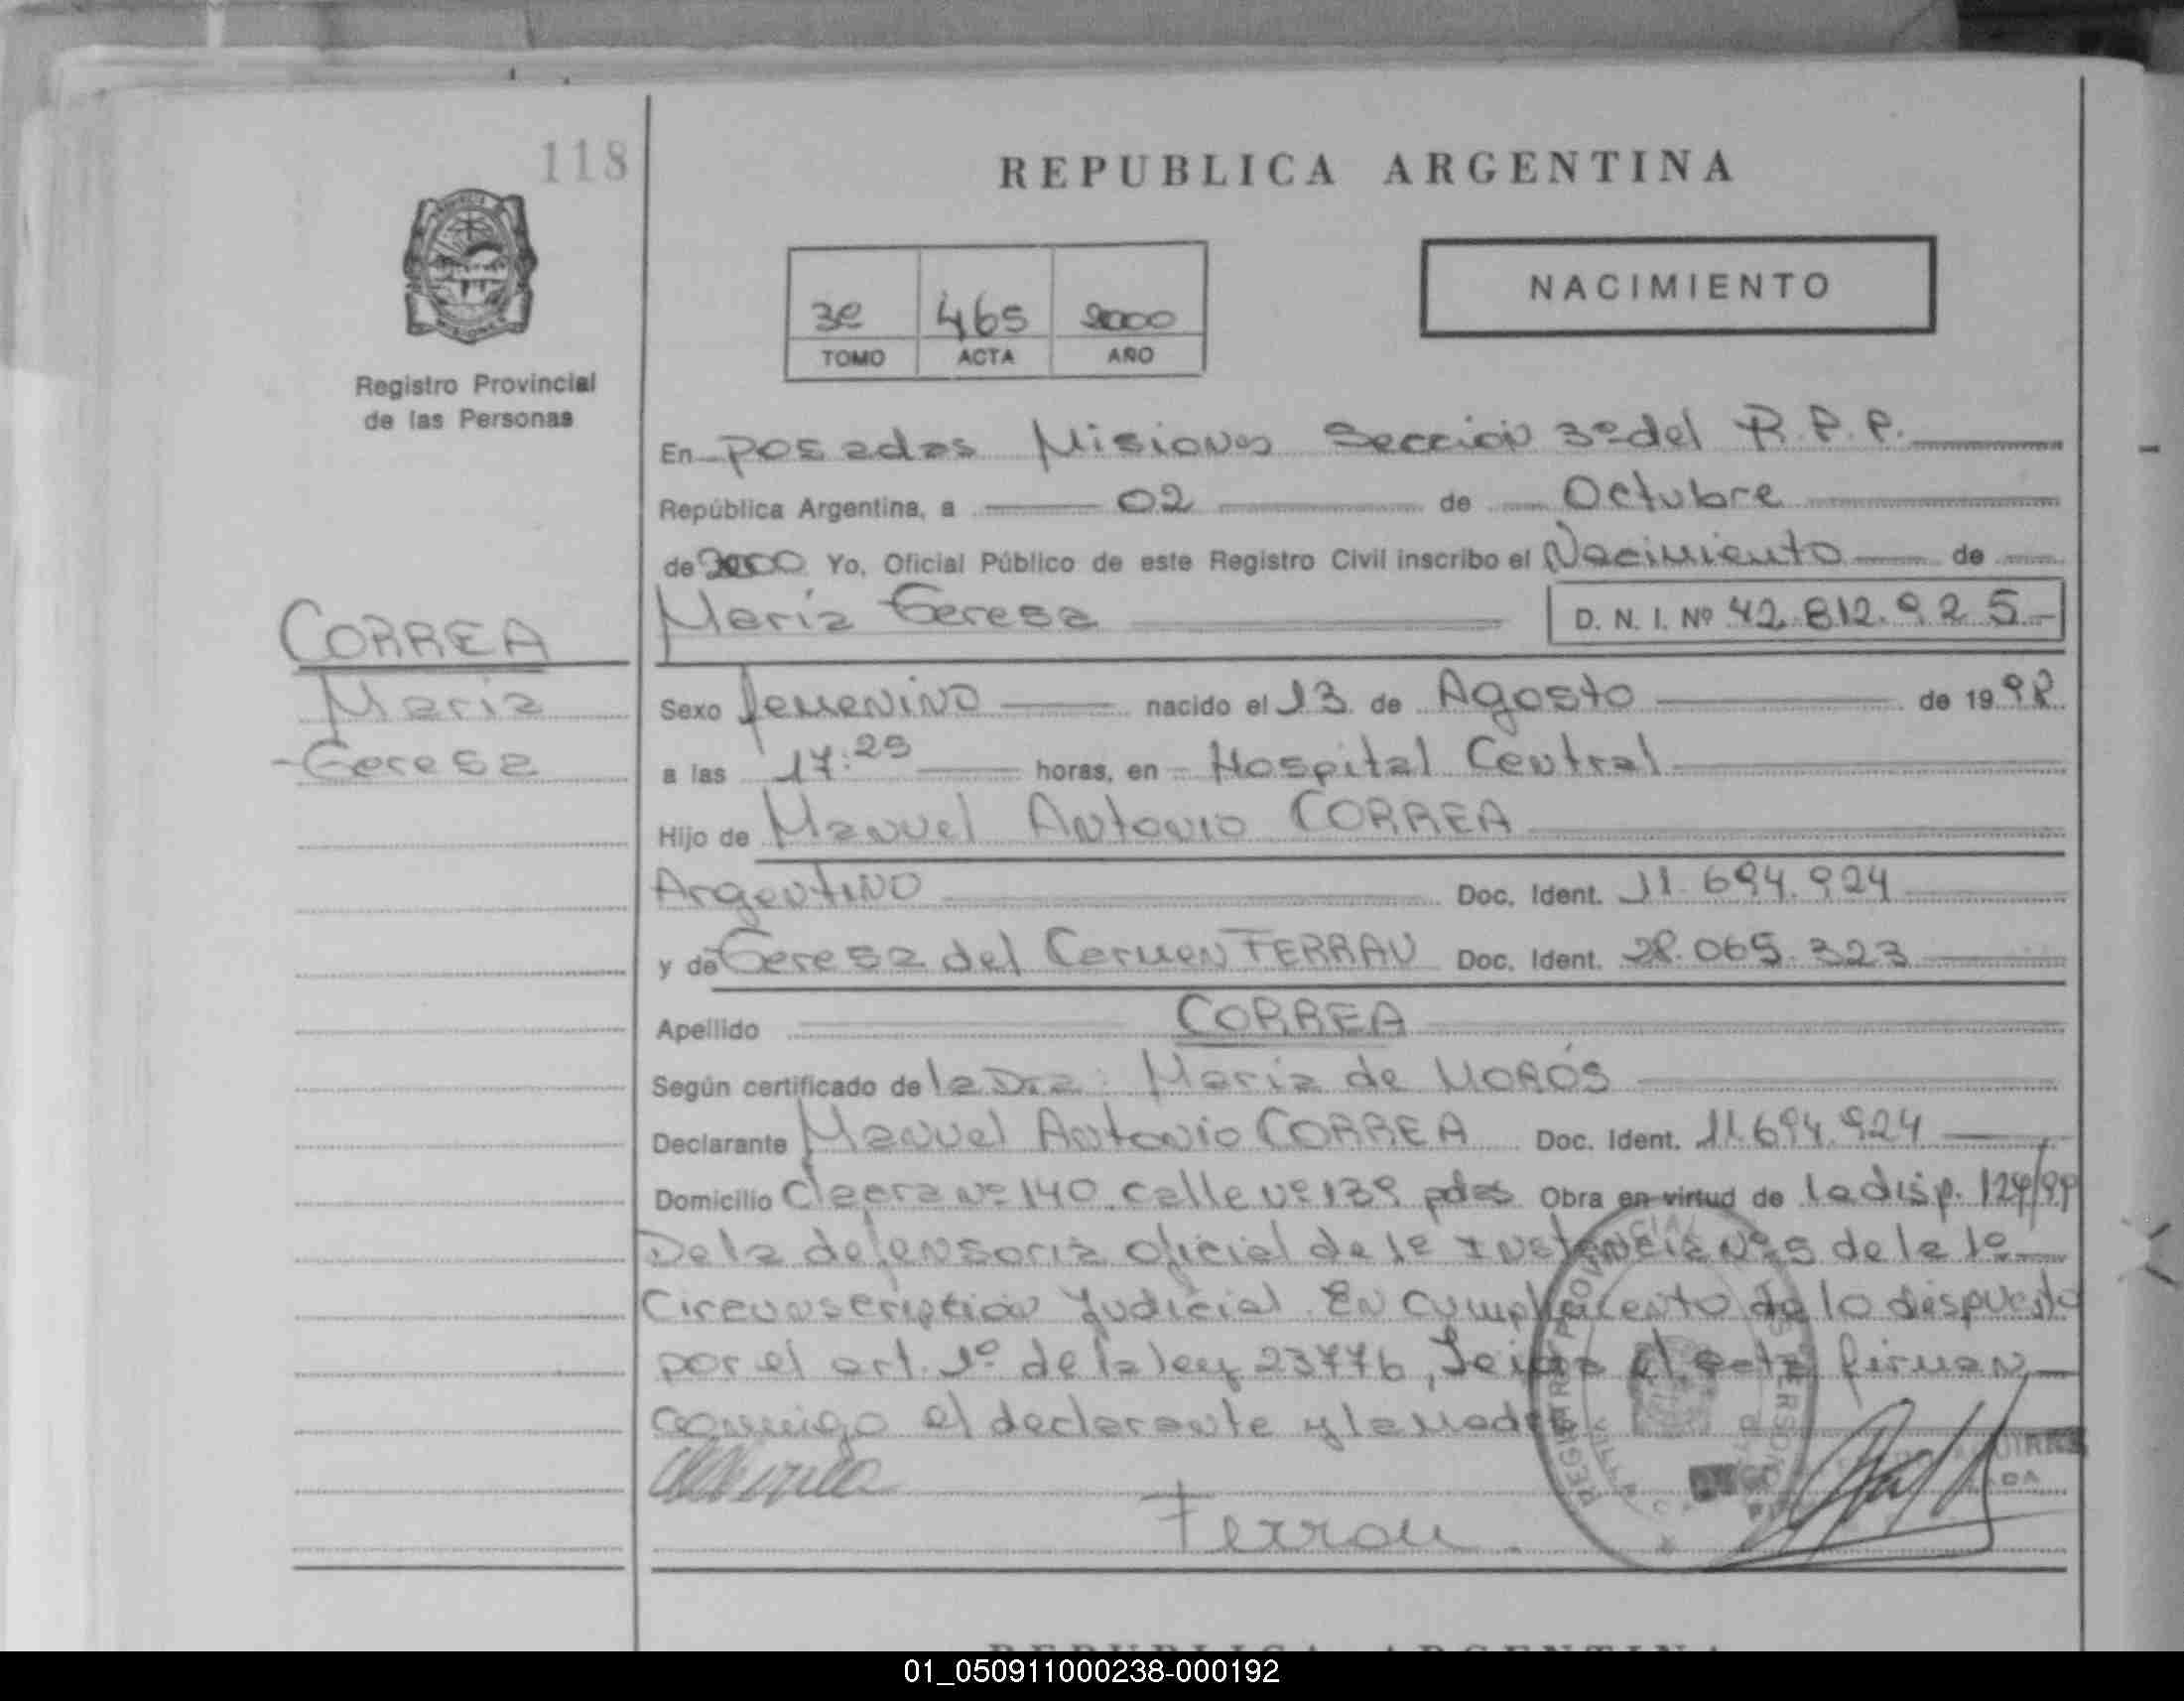 118
REPUBLICA ARGENTINA
NACIMIENTO
3º 465 2000
TOMO ACTA AÑO
Registro Provincial
de las Personas
En Posadas Misiones Sección 3º del R.P.P.
República Argentina, a 02 de Octubre
de 2000 Yo, Oficial Público de este Registro Civil inscribo el Nacimiento de
María Teresa D. N. I. Nº 42.812.925
CORREA
María
Teresa
Sexo femenino nacido el 13 de Agosto de 1998
a las 17:25 horas, en Hospital Central
Hijo de Manuel Antonio CORREA
Argentino Doc. Ident. 11.694.924
y de Teresa del Carmen FERRAU Doc. Ident. 28.065.323
Apellido CORREA
Según certificado de la Dra: María de MORÓS
Declarante Manuel Antonio CORREA Doc. Ident. 11.694.924
Domicilio Chacra Nº 140 calle Nº 139 pdas Obra en virtud de la disp. 124/99
De la defensoria oficial de 1º Instancia Nº 5 de la 1º
Circunscripción Judicial. En cumplimiento de lo dispuesto
por el art. 1º de la ley 23776, Leida el acta firman
conmigo el declarante y la madre
Ferrau.
REGISTRO PROVINCIAL PERSONAS
REPUBLICA ARGENTINA
01_050911000238-000192